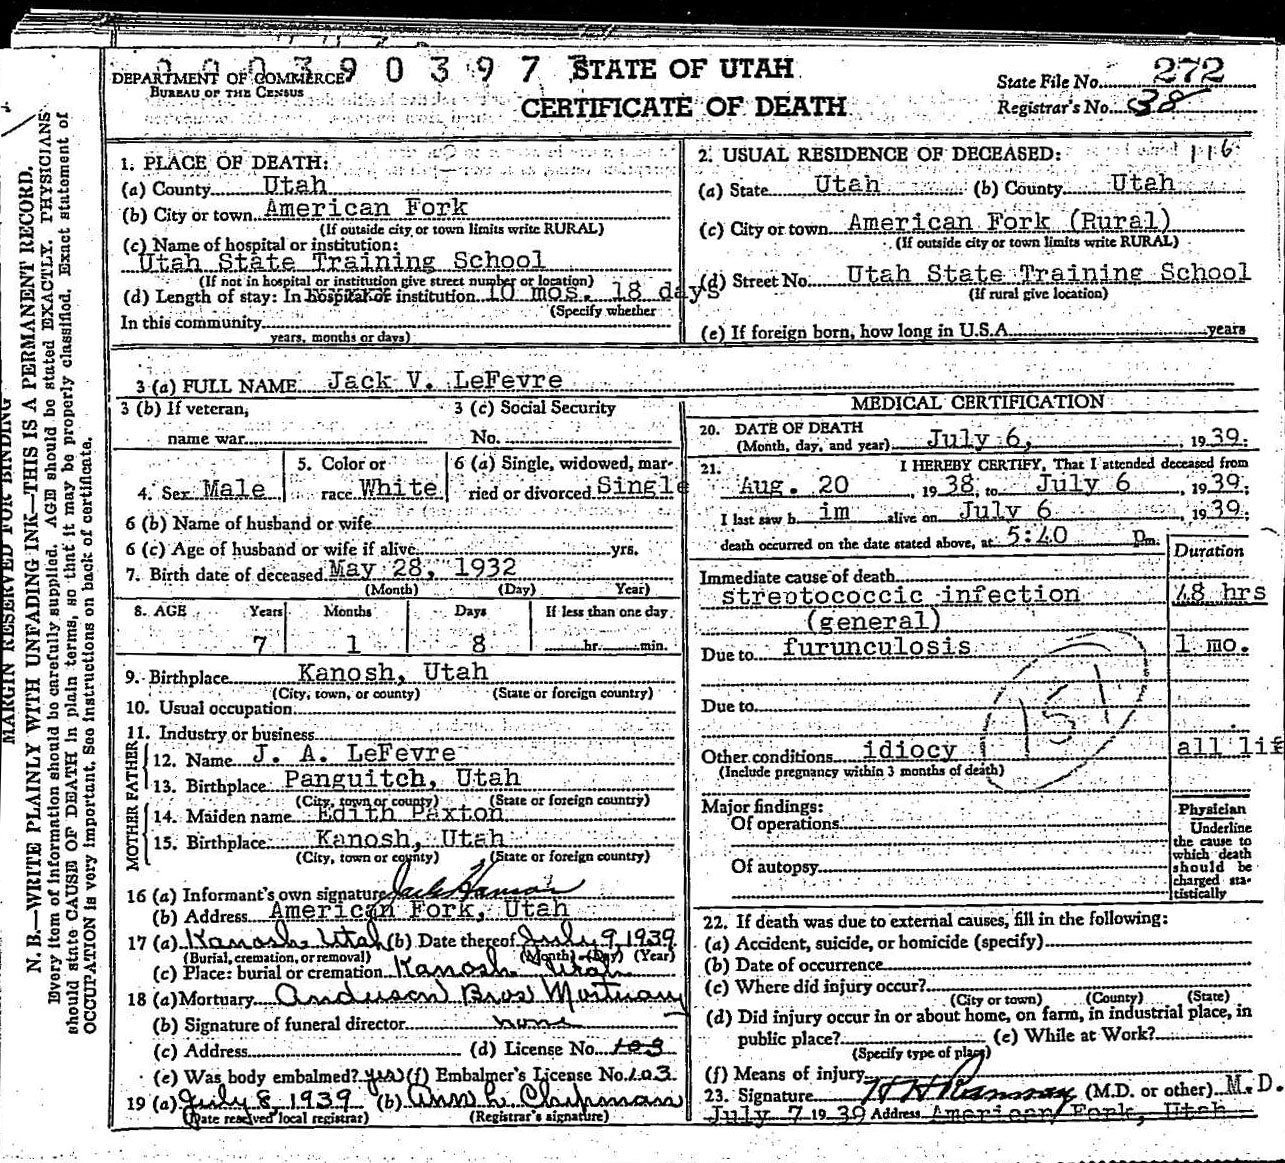 DEPARTMENT OF COMMERCE
BUREAU OF THE CENSUS
9 0 3 9 7
STATE OF UTAH
CERTIFICATE OF DEATH
State File No. 272
Registrar's No. 38
1. PLACE OF DEATH:
(a) County Utah
(b) City or town American Fork
(If outside city or town limits write RURAL)
(c) Name of hospital or institution:
Utah State Training School
(If not in hospital or institution give street number or location)
(d) Length of stay: In hospital or institution 10 mos. 18 days
(Specify whether
In this community
years, months or days)
2. USUAL RESIDENCE OF DECEASED: 116
(a) State Utah (b) County Utah
(c) City or town American Fork (Rural)
(If outside city or town limits write RURAL)
(d) Street No. Utah State Training School
(If rural give location)
(e) If foreign born, how long in U.S.A. years
3 (a) FULL NAME Jack V. LeFevre
3 (b) If veteran,
name war
3 (c) Social Security
No.
4. Sex Male
5. Color or
race White
6 (a) Single, widowed, mar-
ried or divorced Single
6 (b) Name of husband or wife
6 (c) Age of husband or wife if alive yrs.
7. Birth date of deceased May 28, 1932
(Month) (Day) Year)
8. AGE Years Months Days If less than one day
7 1 8 hr. min.
9. Birthplace Kanosh, Utah
(City, town, or county) (State or foreign country)
10. Usual occupation
11. Industry or business
FATHER
12. Name J. A. LeFevre
13. Birthplace Panguitch, Utah
(City, town or county) (State or foreign country)
MOTHER
14. Maiden name Edith Paxton
15. Birthplace Kanosh, Utah
(City, town or county) (State or foreign country)
16 (a) Informant's own signature
(b) Address American Fork, Utah
17 (a) Kanosh Utah (b) Date thereof July 9, 1939
(Burial, cremation, or removal) (Month) (Day) (Year)
(c) Place: burial or cremation Kanosh Utah
18 (a) Mortuary Anderson Bros Mortuary
(b) Signature of funeral director none
(c) Address (d) License No. 103
(e) Was body embalmed? yes (f) Embalmer's License No. 103
19 (a) July 8, 1939 (b) Ann L. Chipman
(Date received local registrar) (Registrar's signature)
MEDICAL CERTIFICATION
20. DATE OF DEATH
(Month, day, and year) July 6, 1939.
21. I HEREBY CERTIFY, That I attended deceased from
Aug. 20, 1938, to July 6, 1939;
I last saw h im alive on July 6, 1939;
death occurred on the date stated above, at 5:40 Pm.
Duration
Immediate cause of death
streptococcic infection 48 hrs
(general)
Due to furunculosis 1 mo.
Due to
151
Other conditions idiocy all lif
(Include pregnancy within 3 months of death)
Major findings:
Of operations
Of autopsy
Physician
Underline
the cause to
which death
should be
charged sta-
tistically
22. If death was due to external causes, fill in the following:
(a) Accident, suicide, or homicide (specify)
(b) Date of occurrence
(c) Where did injury occur?
(City or town) (County) (State)
(d) Did injury occur in or about home, on farm, in industrial place, in
public place? (e) While at Work?
(Specify type of place)
(f) Means of injury
23. Signature H H Ramsay (M.D. or other) M.D.
July 7 1939 Address American Fork, Utah
MARGIN RESERVED FOR BINDING
N. B.—WRITE PLAINLY WITH UNFADING INK—THIS IS A PERMANENT RECORD.
Every item of information should be carefully supplied. AGE should be stated EXACTLY. PHYSICIANS
should state CAUSE OF DEATH in plain terms, so that it may be properly classified. Exact statement of
OCCUPATION is very important. See instructions on back of certificate.